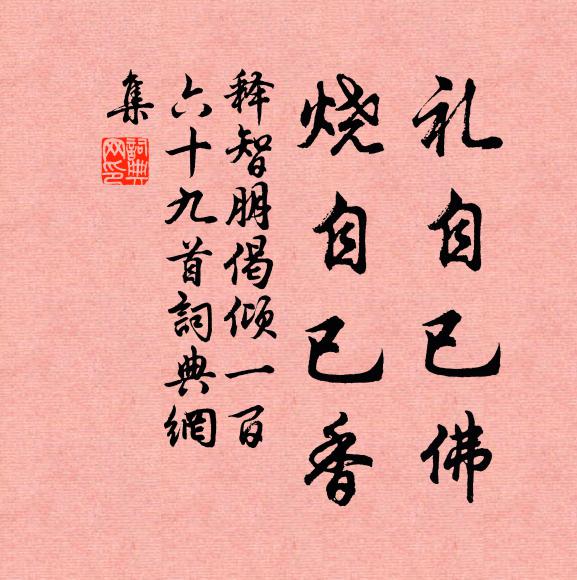 礼自已佛
烧自已香
释智朋偈倾一百
六十九首詞典網
集
詞典网印